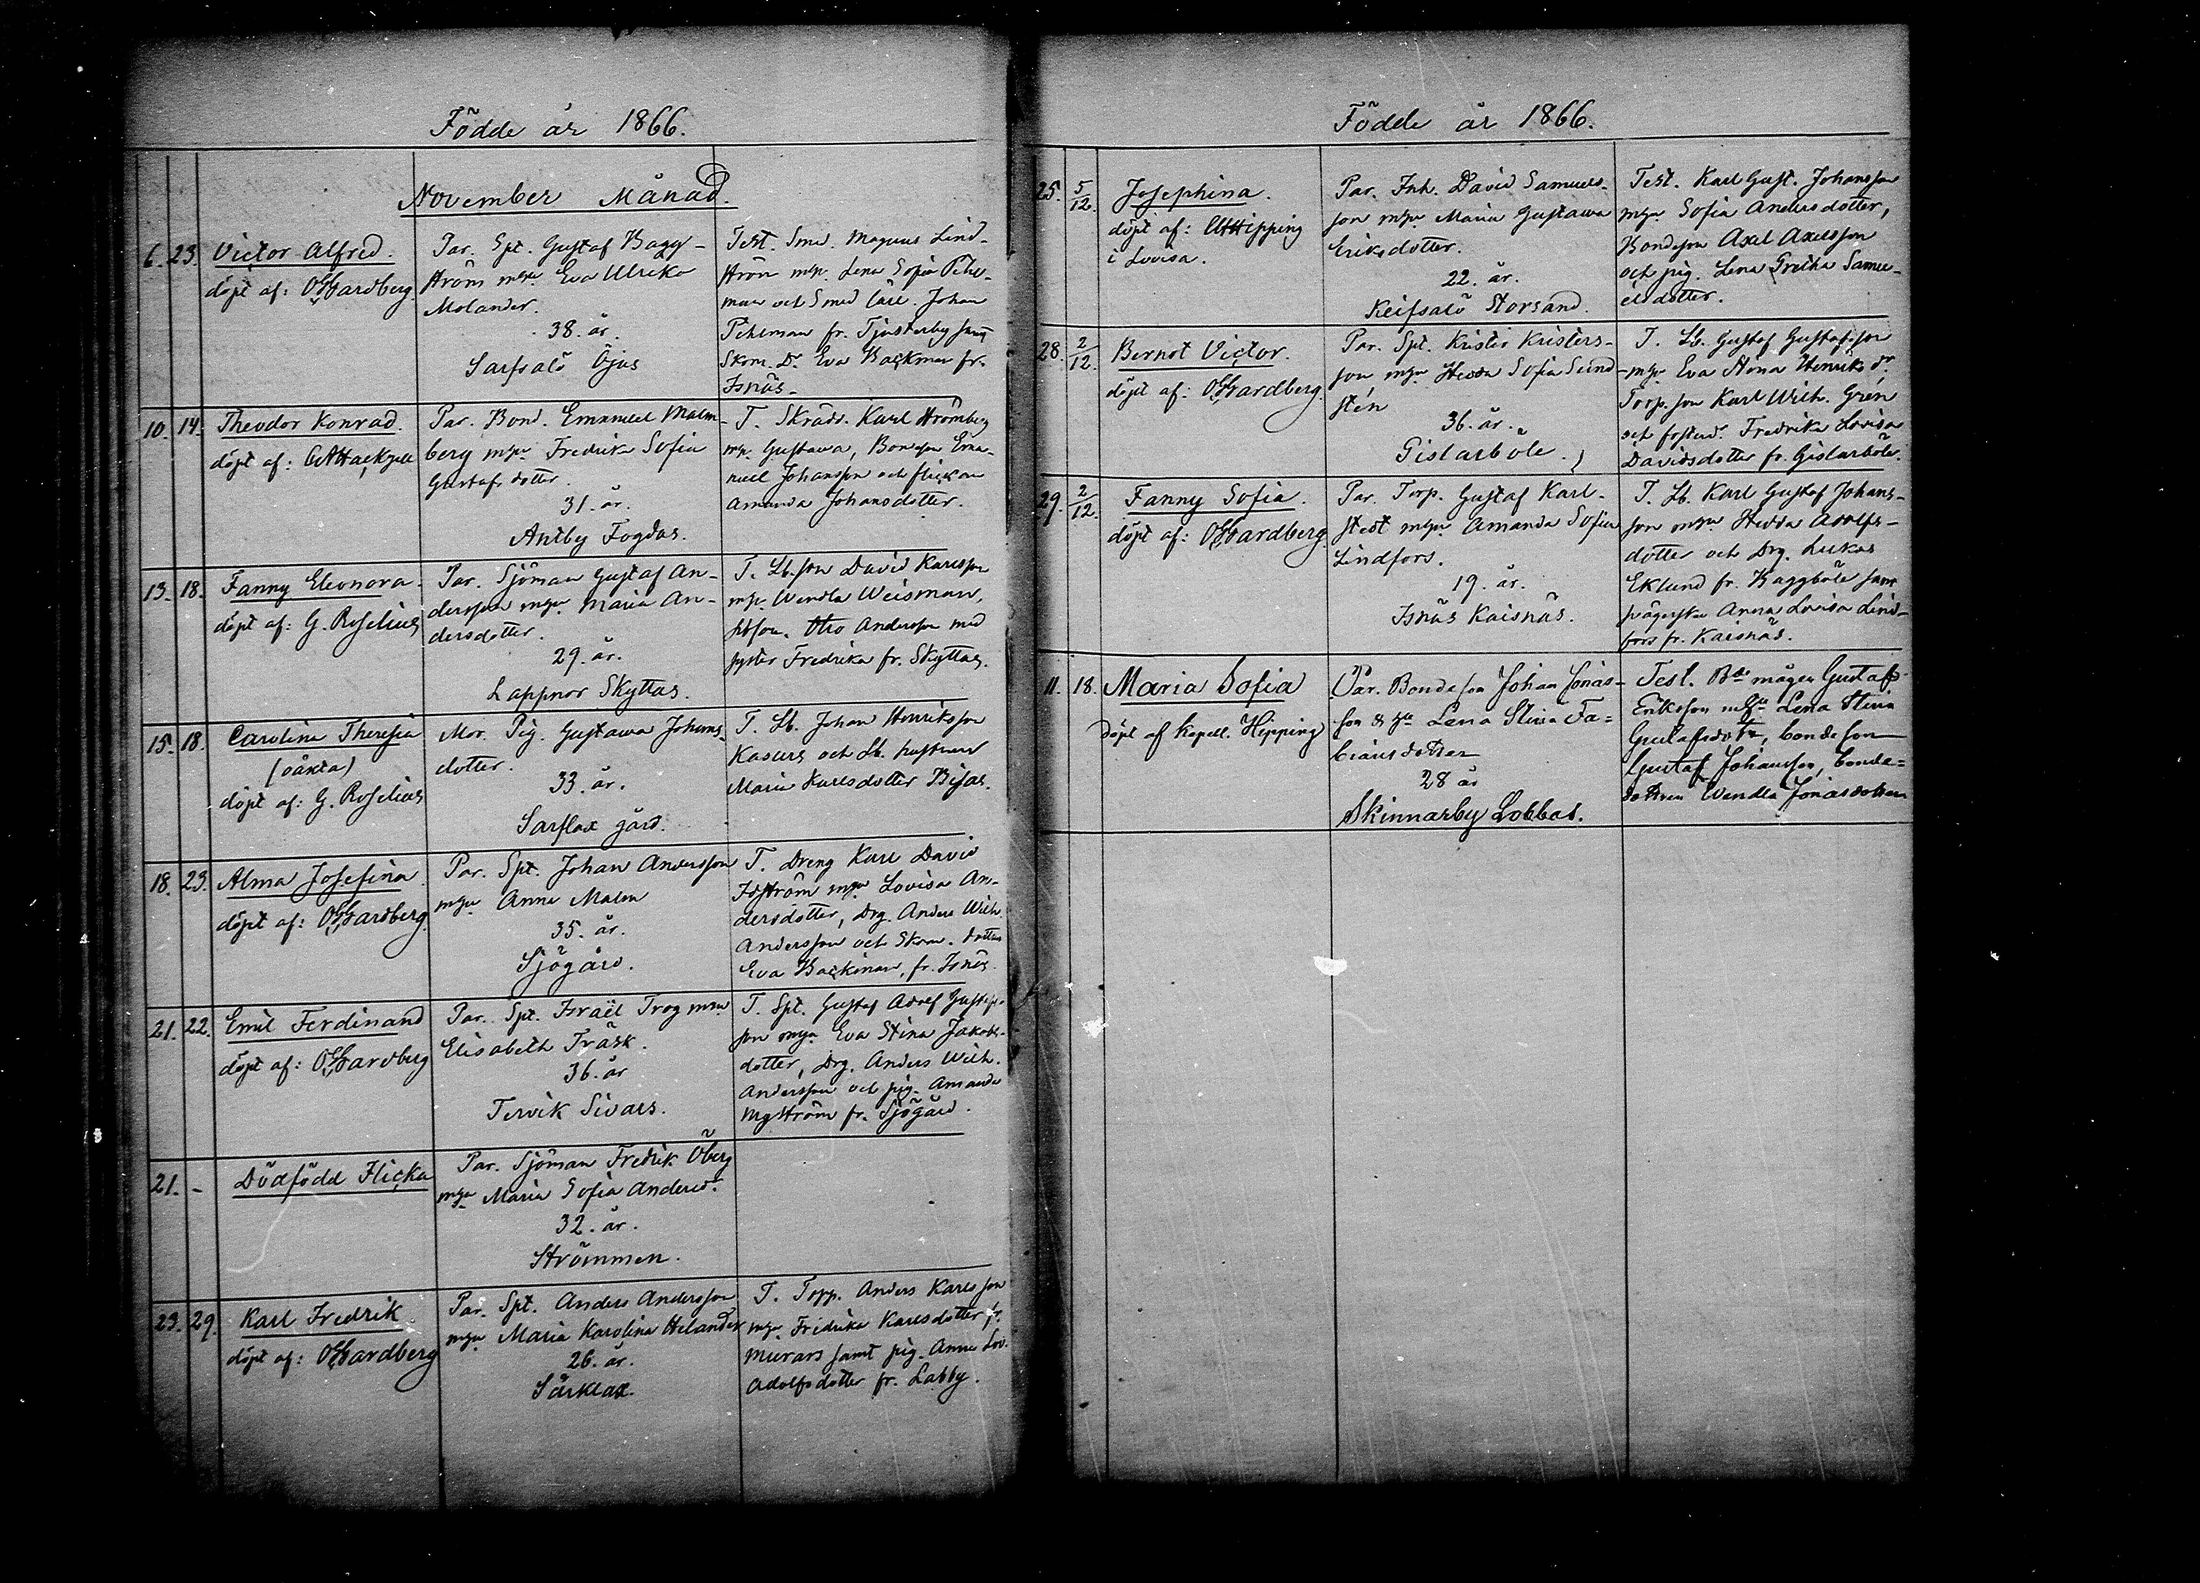 Födde år 1866.
November Månad.
6. 23. Victor Alfred.
döpt af: OGardberg.
Par. Spt. Gustaf Bagg-
ström m hu. Eva Ulrika
Molander.
38. år.
Sarfsalö Öjus
Test. Smed. Magnus Lind-
ström m hu. Lena Sofia Peter-
man och Smed Carl Johan
Peterman fr. Tjusterby samt
Skom. D. Eva Backman fr.
Isnäs.
10. 14. Theodor Konrad.
döpt af:
Par. Bond. Emanuel Malm-
berg m hu. Fredrika Sofia
Gustafsdotter.
31. år.
Antby Fogdas.
T. Skrädd. Karl Strömberg
m hu. Gustava, Bondeson Ema-
nuel Johansson och flickan
Amanda Johansdotter.
13. 18. Fanny Eleonora.
döpt af: G. Roselius
Par. Sjöman Gustaf An-
dersson m hu. Maria An-
dersdotter.
29. år.
Lappnor Skyttas.
T. Lb. son David Karlsson
m hu. Wendla Weisman,
Otto Andersson med
syster Fredrika fr. Skyttas.
15. 18. Carolina Theresia
(oäkta)
döpt af: G. Roselius
Mor. Pig. Gustava Johans-
dotter.
33. år.
Sarflax gård.
T. Lb. Johan Henriksson
Kasurs och Lb. hustrun
Maria Karlsdotter Bisas.
18. 23. Alma Josefina.
döpt af: OGardberg.
Par. Spt. Johan Andersson
m hu. Anna Malm
35. år.
Sjögård.
T. Dreng Karl David
Idström m hu. Lovisa An-
dersdotter, Drg. Anders Wilh.
Andersson och Skom. dotter
Eva Backman, fr. Isnäs.
21. 22. Emil Ferdinand
döpt af: OGardberg
Par. Spt. Israël Trog m hu
Elisabeth Träsk.
36. år
Tervik Sivars.
T. Spt. Gustaf Adolf Gustafs-
son m hu. Eva Stina Jakobs-
dotter, Drg. Anders Wilh.
Andersson och pig. Amanda
Nyström fr. Sjögård.
21. - Dödfödd Flicka
Par. Sjöman Fredrik Öberg
m hu Maria Sofia Andersdr.
32. år.
Strömmen.
23. 29. Karl Fredrik
döpt af: OGardberg
Par. Spt. Anders Andersson
m hu Maria Karolina Helander
26. år.
Särklax.
T. Torp. Anders Karlsson
m hu. Fridrika Karlsdotter fr.
Murars samt pig. Anna Lov.
Adolfsdotter fr. Labby.
Födde år 1866.
25. 5/12. Josephina.
döpt af: Hipping
i Lovisa.
Par. Inh. David Samuels-
son m hu Maria Gustawa
Eriksdotter.
22. år.
Keifsalö Storsand.
Test. Karl Gust. Johansson
m hu Sofia Andersdotter,
Bondeson Axel Axelsson
och pig. Lena Gretha Samu-
elsdotter.
28. 2/12. Bernot Victor.
döpt af: OGardberg.
Par. Spt. Krister Kristers-
son m hu Hedda Sofia Sund-
stén
36. år.
Gislarböle.
T. Lb. Gustaf Gustafsson
m hu Eva Stina Henriksdr.
Torp. son Karl Wilh. Grén
och fosterd. Fredrika Lovisa
Davidsdotter fr. Gislarböle.
29. 2/12. Fanny Sofia.
döpt af: OGardberg.
Par. Torp. Gustaf Karl-
stedt m hu Amanda Sofia
Lindfors.
19. år.
Isnäs Kaisnäs.
T. Lb. Karl Gustaf Johans-
son m hu Hedda Adolfs-
dotter och Drg. Lukas
Eklund fr. Baggböle samt
Anna Lovisa Lind-
fors fr. Kaisnäs.
11. 18. Maria Sofia
döpt af kapell. Hipping
Par. Bondeson Johan Jonas-
son & hu Lena Stina Fa-
biansdotter
28 år
Skinnarby Lobbas.
Test. Bde mågen Gustaf
Eriksson m hu Lena Stina
Gustafsdotr, bondeson
Gustaf Johansson, bonde-
dottren Wendla Jonasdotter